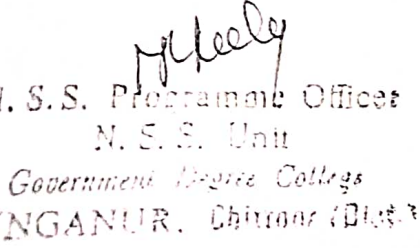 N.S.S. Programme Officer
N. S. S. Unit
Government Degree College
NGANUR. Chittoor (Dist.)